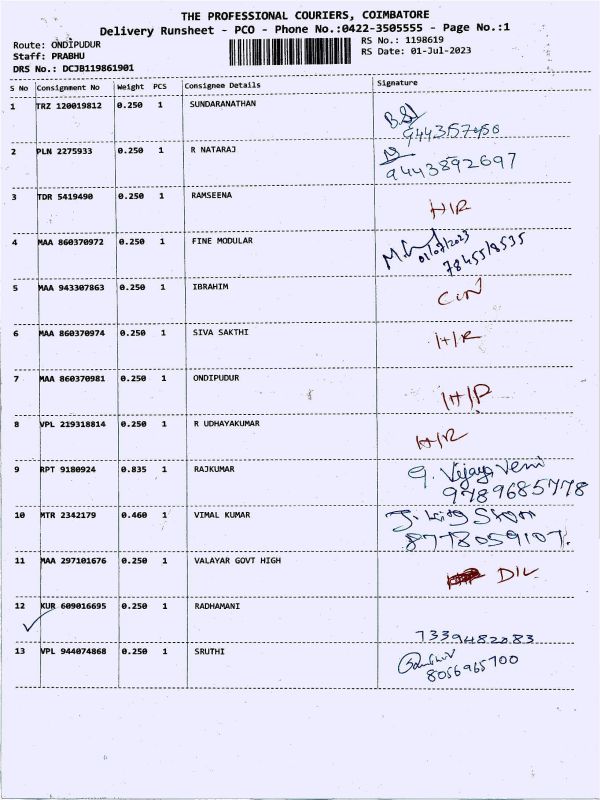 THE PROFESSIONAL COURIERS, COIMBATORE
Delivery Runsheet - PCO - Phone No.:0422-3505555 - Page No.:1
Route: ONDIPUDUR
RS No.: 1198619
Staff: PRABHU
RS Date: 01-Jul-2023
DRS No.: DCJB119861901
S No Consignment No Weight PCS Consignee Details Signature
1 TRZ 120019812 0.250 1 SUNDARANATHAN
2 PLN 2275933 0.250 1 R NATARAJ 9443892697
3 TDR 5419490 0.250 1 RAMSEENA H/R
4 MAA 860370972 0.250 1 FINE MODULAR 01/07/2023
7845518535
5 MAA 943307863 0.250 1 IBRAHIM
6 MAA 860370974 0.250 1 SIVA SAKTHI H/R
7 MAA 860370981 0.250 1 ONDIPUDUR
8 VPL 219318814 0.250 1 R UDHAYAKUMAR H/R
9 RPT 9180924 0.835 1 RAJKUMAR G. Vijaya Veni
9789685778
10 MTR 2342179 0.460 1 VIMAL KUMAR
8778059107.
11 MAA 297101676 0.250 1 VALAYAR GOVT HIGH D/L
12 KUR 609016695 0.250 1 RADHAMANI
7339482083
13 VPL 944074868 0.250 1 SRUTHI
8056965700